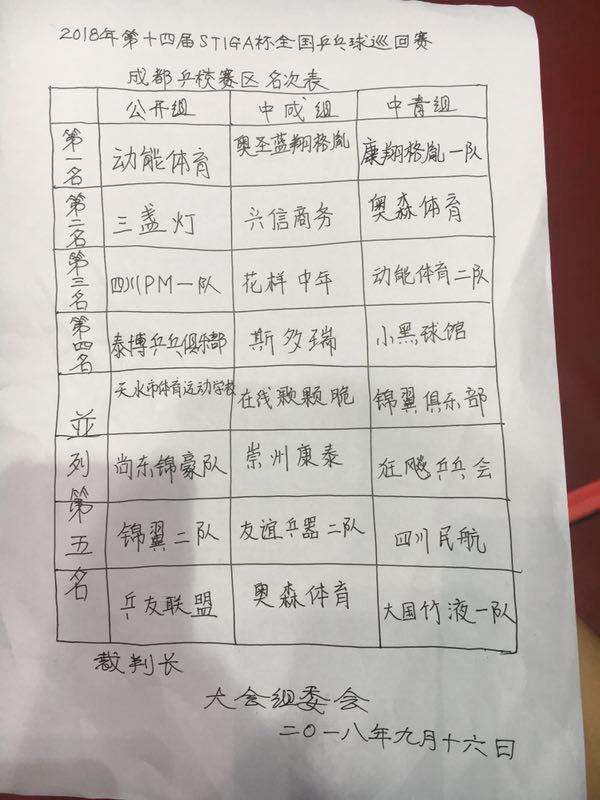 2018年第十四届STIGA杯全国乒乓球巡回赛
成都乒校赛区名次表
公开组 中成组 中青组
第一名 动能体育 奥圣蓝翔格胤 康翔格胤一队
第二名 三盏灯 兴信商务 奥森体育
第三名 四川PM一队 花样中年 动能体育二队
第四名 泰博乒乓俱乐部 斯多瑞 小黑球馆
並列第五名 天水市体育运动学校 在线颗颗脆 锦翼俱乐部
尚东锦豪队 崇州康泰 狂飚乒乓会
锦翼二队 友谊乒器二队 四川民航
乒友联盟 奥森体育 大国竹液一队
裁判长
大会组委会
二〇一八年九月十六日